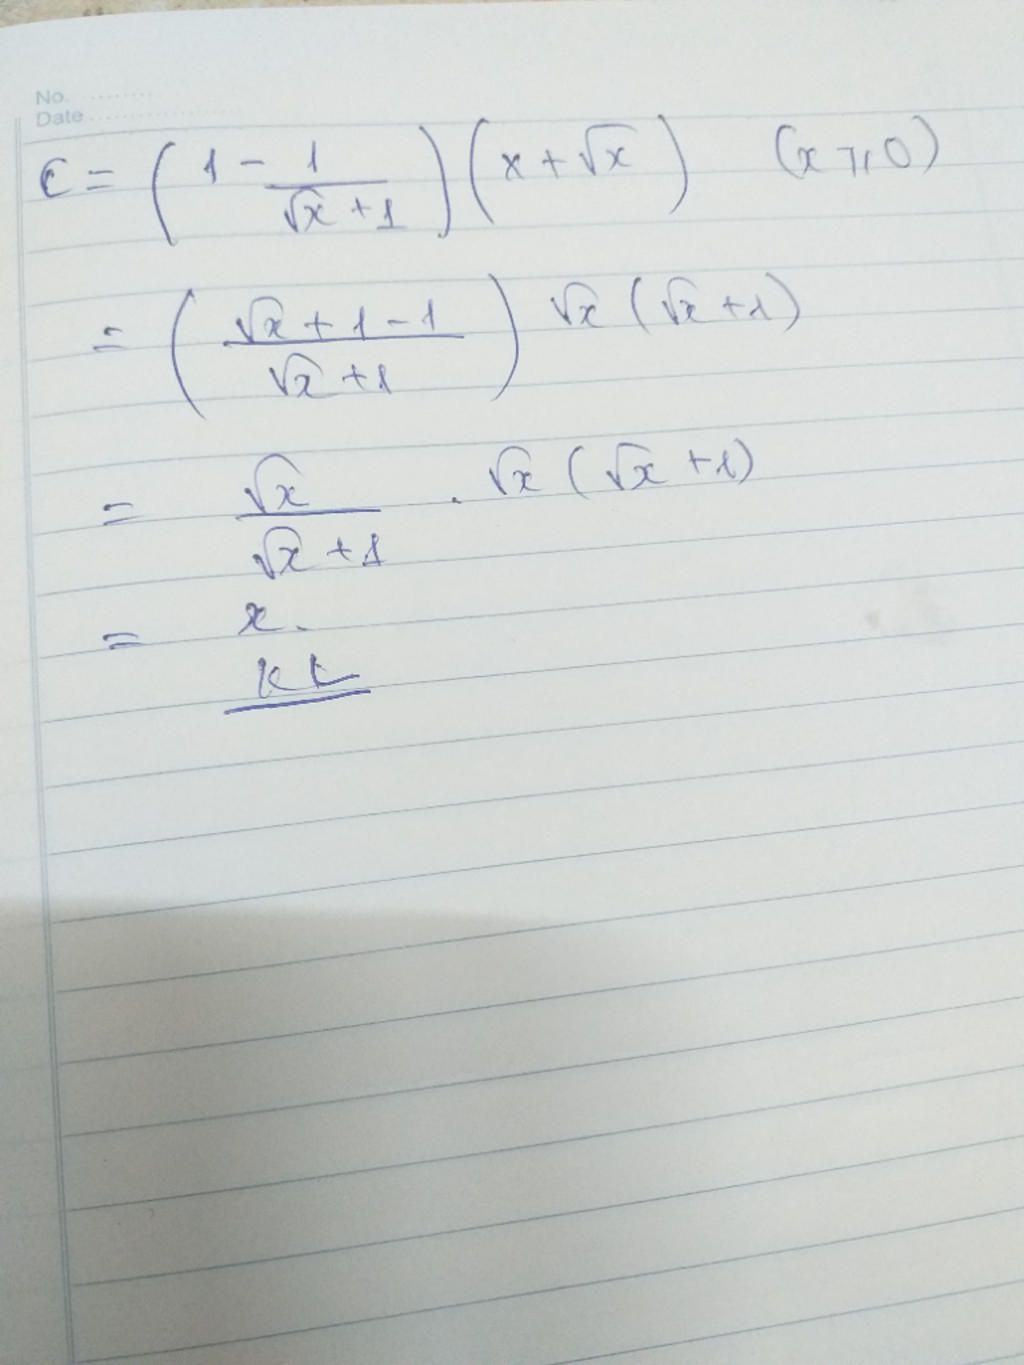 No. ........
Date ................
C = (1 - 1/(√x + 1)) (x + √x) (x ≥ 0)
= ((√x + 1 - 1)/(√x + 1)) √x (√x + 1)
= √x/(√x + 1) . √x (√x + 1)
= x.
KL